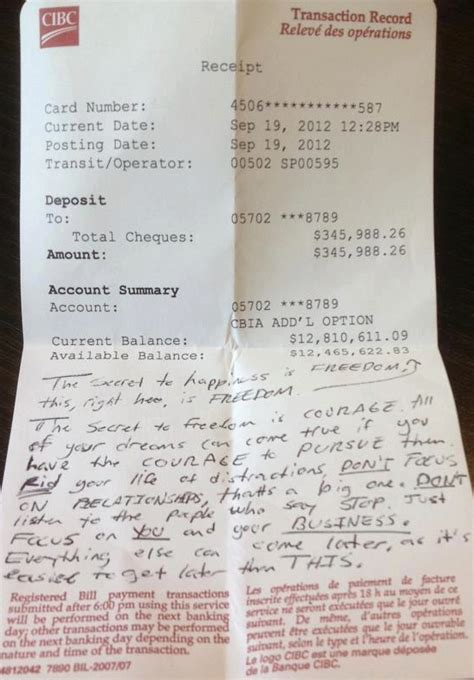 CIBC
Transaction Record
Relevé des opérations
Receipt
Card Number: 4506***********587
Current Date: Sep 19, 2012 12:28PM
Posting Date: Sep 19, 2012
Transit/Operator: 00502 SP00595
Deposit
To: 05702 ***8789
Total Cheques: $345,988.26
Amount: $345,988.26
Account Summary
Account: 05702 ***8789
CBIA ADD'L OPTION
Current Balance: $12,810,611.09
Available Balance: $12,465,622.83
The secret to happiness is FREEDOM.
this, right here, is FREEDOM.
The secret to freedom is COURAGE. All
of your dreams can come true if you
have the COURAGE to PURSUE them.
Rid your life of distractions, DON'T FOCUS
ON RELATIONSHIPS, thats a big one. DON'T
listen to the people who say STOP. Just
FOCUS on YOU and your BUSINESS.
Everything else can come later, as it's
easier to get later then THIS.
Registered Bill payment transactions
submitted after 6:00 pm using this service
will be performed on the next banking
day; other transactions may be performed
on the next banking day depending on the
nature and time of the transaction.
4812042 7890 BIL-2007/07
Les opérations de paiement de facture
inscrite effectuées après 18 h au moyen de ce
service seront exécutées que le jour ouvré
suivant. De même, d'autres opérations
peuvent être exécutées que le jour ouvré
suivant, selon le type et l'heure de l'opération.
Le logo CIBC est une marque déposée
de la Banque CIBC.